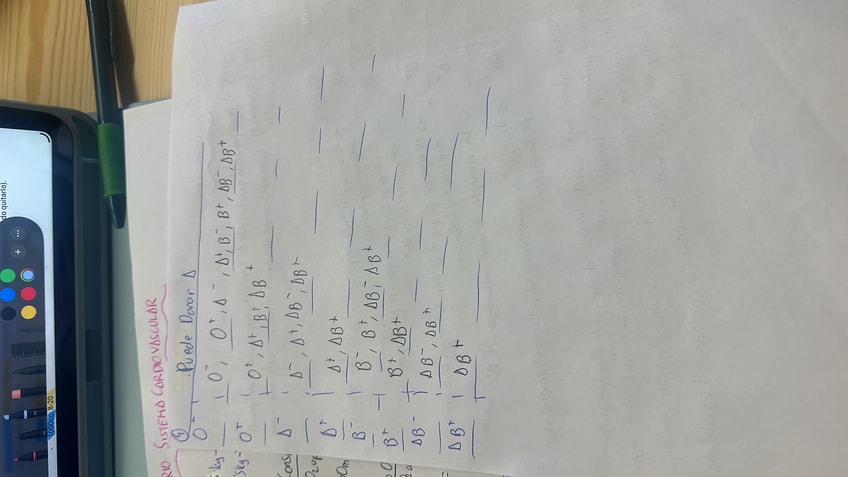 RIO SISTEMA CARDIOVASCULAR
① Puede Donar A
O⁻ | O⁻, O⁺, A⁻, A⁺, B⁻, B⁺, AB⁻, AB⁺
O⁺ | O⁺, A⁺, B⁺, AB⁺
A⁻ | A⁻, A⁺, AB⁻, AB⁺
A⁺ | A⁺, AB⁺
B⁻ | B⁻, B⁺, AB⁻, AB⁺
B⁺ | B⁺, AB⁺
AB⁻ | AB⁻, AB⁺
AB⁺ | AB⁺
do quitarlo).